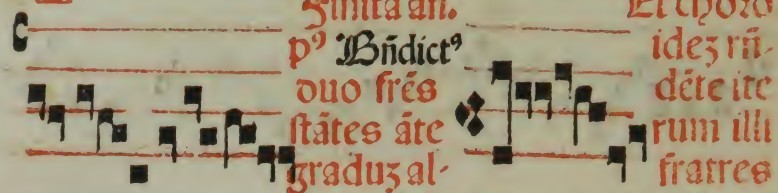 Finita añ.
p⁹ Bñdict⁹
duo frēs
stātes āte
graduʒ al-
Et choro
ideʒ rñ-
dēte ite
rum illi
fratres